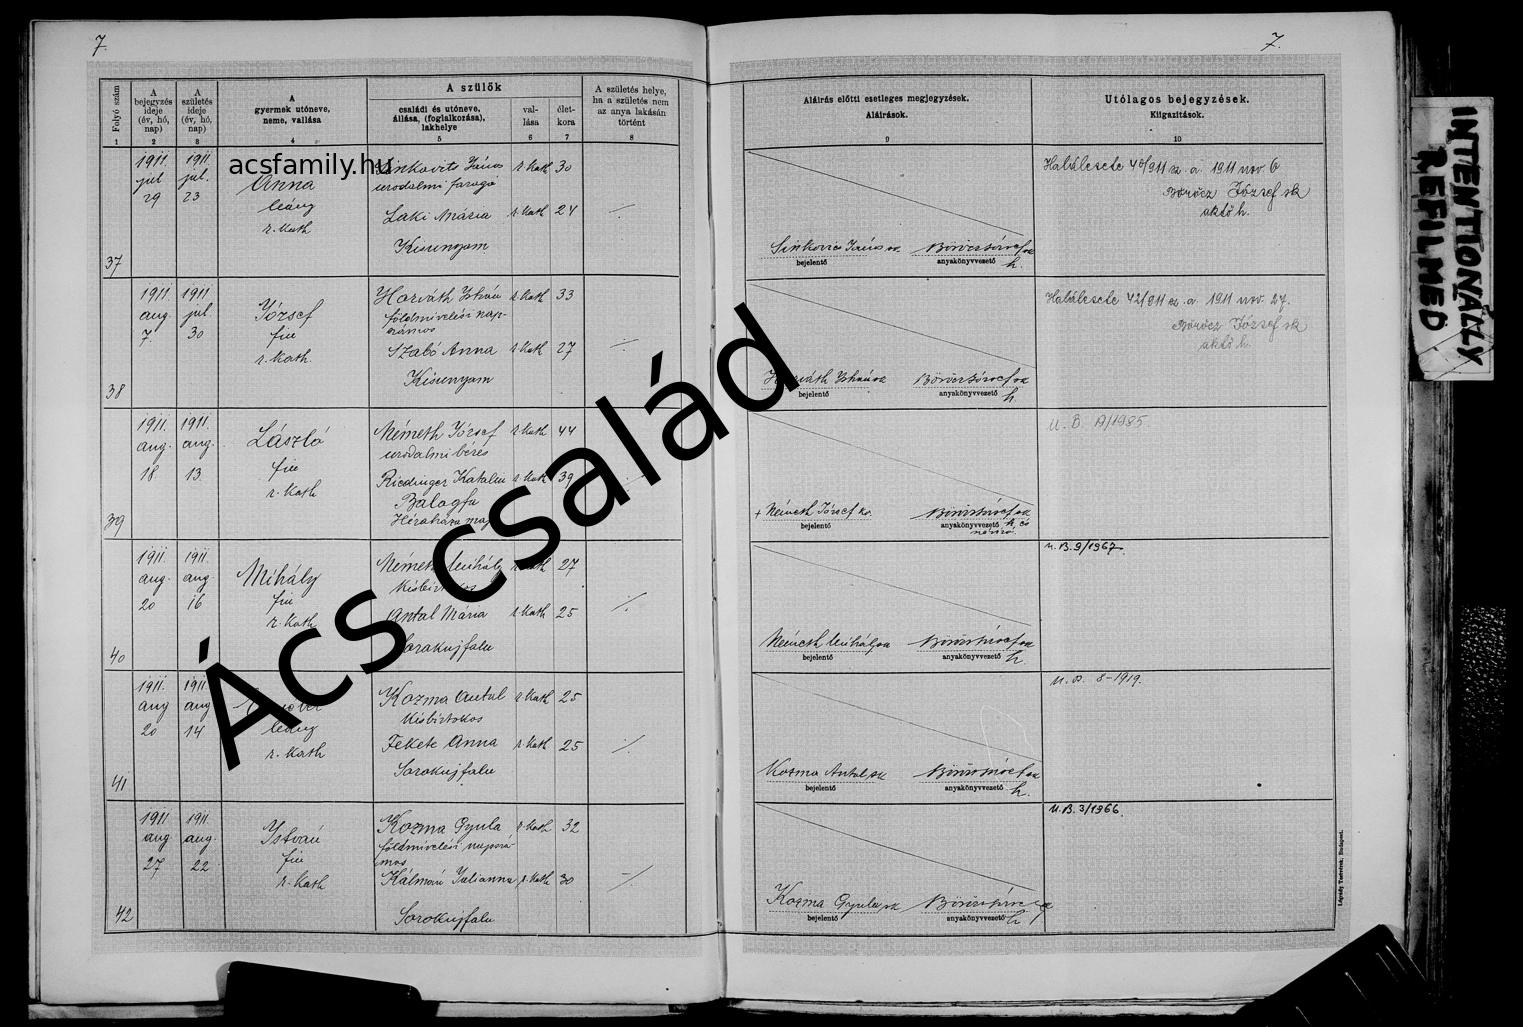 7.
7.
Folyó szám
A bejegyzés ideje (év, hó, nap)
A születés ideje (év, hó, nap)
A gyermek utóneve, neme, vallása
A szülők
családi és utóneve, állása, (foglalkozása), lakhelye
val-lása
élet-kora
A születés helye, ha a születés nem az anya lakásán történt
Aláírás előtti esetleges megjegyzések.
Aláírások.
Utólagos bejegyzések.
Kiigazítások.
1 2 3 4 5 6 7 8 9 10
acsfamily.hu
37
1911 júl 29
1911. júl. 23
Anna
leány
r. kath
Sinkovits János r. kath 30
Laki Mária r. kath 24
Kisunyom
Sinkovics János sk
bejelentő
anyakönyvvezető
h.
Haláleset 40/911 sz. a. 1911 nov. 6
Böröcz József sk
38
1911 aug. 7.
1911. júl 30
József
fiu
r. kath.
Horváth István r. kath 33
földmivelési nap-
számos
Szabó Anna r. kath 27
Kisunyom
Horváth István sk
bejelentő
anyakönyvvezető
h.
Haláleset 42/911 sz. a. 1911 nov. 27.
Böröcz József sk
39
1911. aug. 18.
1911. aug. 13.
László
fiu
r. kath
Németh József r. kath 44
uradalmi béres
Riedinger Katalin r. kath 39
Balogfa
+ Németh József
bejelentő
anyakönyvvezető
U. B. A/1985
40
1911. aug. 20
1911. aug 16
Mihály
fiu
r. kath
Németh Mihály r. kath 27
kisbirtokos
Antal Mária r. kath 25
Sorokujfalu
Németh Mihály sk
bejelentő
anyakönyvvezető
h.
U. B. 9/1967.
41
1911. aug 20
1911. aug 14
leány
r. kath
Kozma Antal r. kath 25
kisbirtokos
Fekete Anna r. kath 25
Sorokujfalu
Kozma Antal sk
bejelentő
anyakönyvvezető
h.
U. B. 8-1919.
42
1911 aug 27
1911. aug. 22
István
fiu
r. kath
Kozma Gyula r. kath 32
földmivelési napszá-
mos
Kálmán Julianna r. kath 30
Sorokujfalu
Kozma Gyula sk
bejelentő
anyakönyvvezető
h
U. B. 3/1966.
Légrády Testvérek, Budapest.
Ács család
INTENTIONALLY
REFILMED